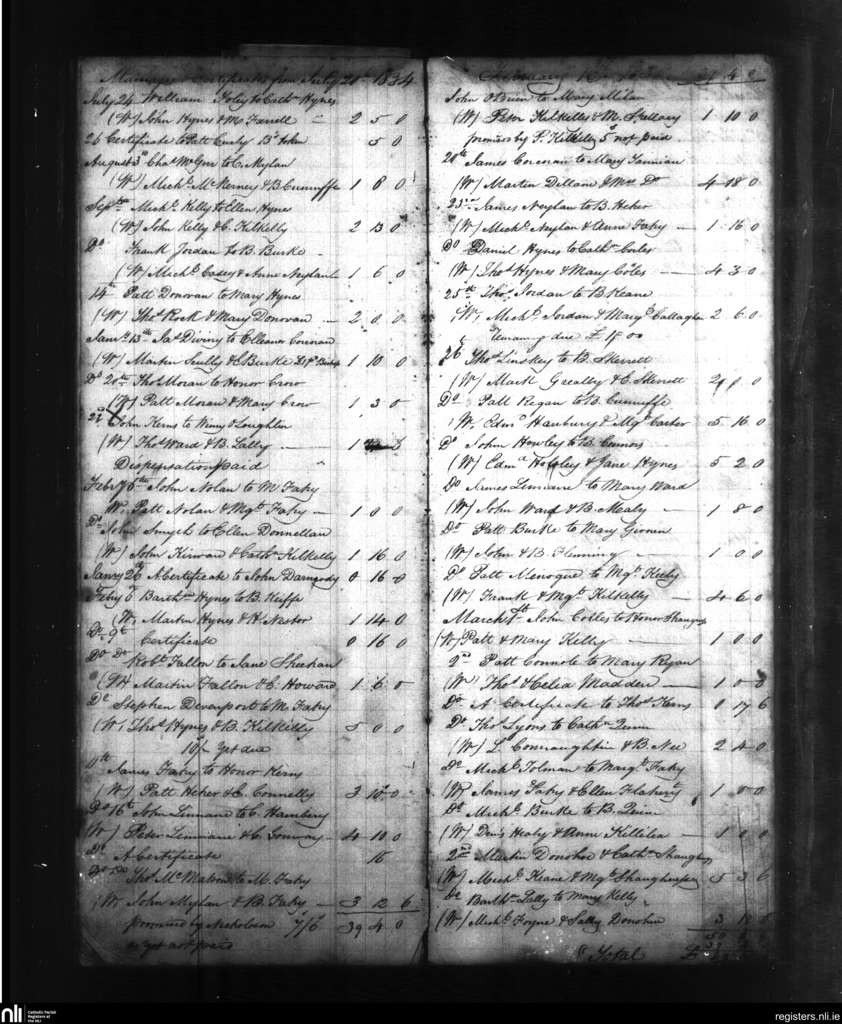 Marriages & Certificates from July 20th 1834
July 24 William Foley to Cathn Hynes
(W) John Hynes & M Farrell 2 5 0
26 Certificate to Patt Curly 5 0
August 3d Chas McGrr to C. Neylan
(W) Michl McNerney & B Cunniffe 1 8 0
Septr Michl Kelly to Ellen Hyne
(W) John Kelly & C. Kilkelly 2 13 0
Do Frank Jordan to B. Burke
(W) Michl Casey & Anne Neylan 1 6 0
14th Patt Donovan to Mary Hynes
(W) Thos Rock & Mary Donovan 2 0 0
Janry 13th Jas Diviny to Elleanor Corcoran
(W) Martin Scully & C Burke 1 10 0
Do 20th Thos Moran to Honor Crow
(W) Patt Moran & Mary Crow 1 3 0
22 John Kerns to Winny OLoughlen
(W) Thos Ward & B. Lally 1
Dispensation paid
Febry 5th John Nolan to M Fahy
W. Patt Nolan & Mgt Fahy 1 0 0
Do John Smyth to Ellen Donnellan
(W) John Kirwan & Cathn Kilkelly 1 16 0
Janry 26th A Certificate to John Darmody 0 16 0
Feby 6 Barthw Hynes to B. Keiffe
(W) Martin Hynes & H. Nestor 1 14 0
Do 9th Certificate 0 16 0
Do Do Robt Fallon to Jane Sheehan
(W) Martin Fallon & C. Howard 1 6 0
Do Stephen Devenport to M. Fahy
(W) Thos Hynes & B. Kilkelly 5 0 0
10/- yet due
James Fahy to Honor Kerns
(W) Patt Heher & C. Connelly 3 10 0
Do 16th John Linnane to C. Hanbery
(W) Peter Linnane & C. Conway 4 10 0
Do A Certificate 16
Do Do Thos McMahon to M. Fahy
(W) John Nylan & B. Fahy 3 12 6
promised by Nicholson 7/6 39 4 0
as yet not paid
February 39 4 0
John OBrien to Mary Milan
(W) Peter Kilkelly & M. Skellary 1 10 0
promised by P. Kilkelly 5s not paid
20th James Corcoran to Mary Fannian
(W) Martin Dillane & Mrs Do 4 18 0
23rd James Neylan to B. Heher
(W) Michl Neylan & Anne Fahy 1 16 0
Do Daniel Hynes to Cathn Coles
(W) Thos Hynes & Mary Coles 4 3 0
25th Thos Jordan to B Keane
(W) Michl Jordan & Mary Callaghn 2 6 0
Remaining due £
26 Thos Linskey to B. Skerrett
(W) Mark Greally & C. Skerrett 2 8 0
Do Patt Regan to B. Cunniffe
(W) Edmd Hanbury & Mgt Carter 5 16 0
Do John Howley to B. Connors
(W) Edmd Howley & Jane Hynes 5 2 0
Do James Linnane to Mary Ward
(W) John Ward & B. Mealy 1 8 0
Do Patt Burke to Mary
(W) John & B. Flenning 1 0 0
Do Patt Menogue to Mgt Keely
(W) Frank & Mgt Kilkelly 4 6 0
March 1st John Coles to Honor Shaughns
(W) Patt & Mary Kelly 1 0 0
2nd Patt Connote to Mary Ryan
(W) Thos & Celia Madden 1 0 0
Do A Certificate to Thos Kerns 0 17 6
Do Thos Lyons to Cathn Quinn
(W) L. Connaughtin & B. Nee 2 4 0
Do Michl Tolman to Margt Fahy
(W) James Fahy & Ellen Flaherty 1 0 0
Do Michl Burke to B. Quinn
(W) Denis Healy & Ann Killilea 1 0 0
2nd Martin Donohoe & Cathn Shaughns
(W) Michl Keane & Mgt Shaughnessy 5 3 6
Do Barthw Lally to Mary Kelly
(W) Michl Foyne & Sally Donohoe
Total £
nli
Catholic Parish
Registers at
the NLI
registers.nli.ie